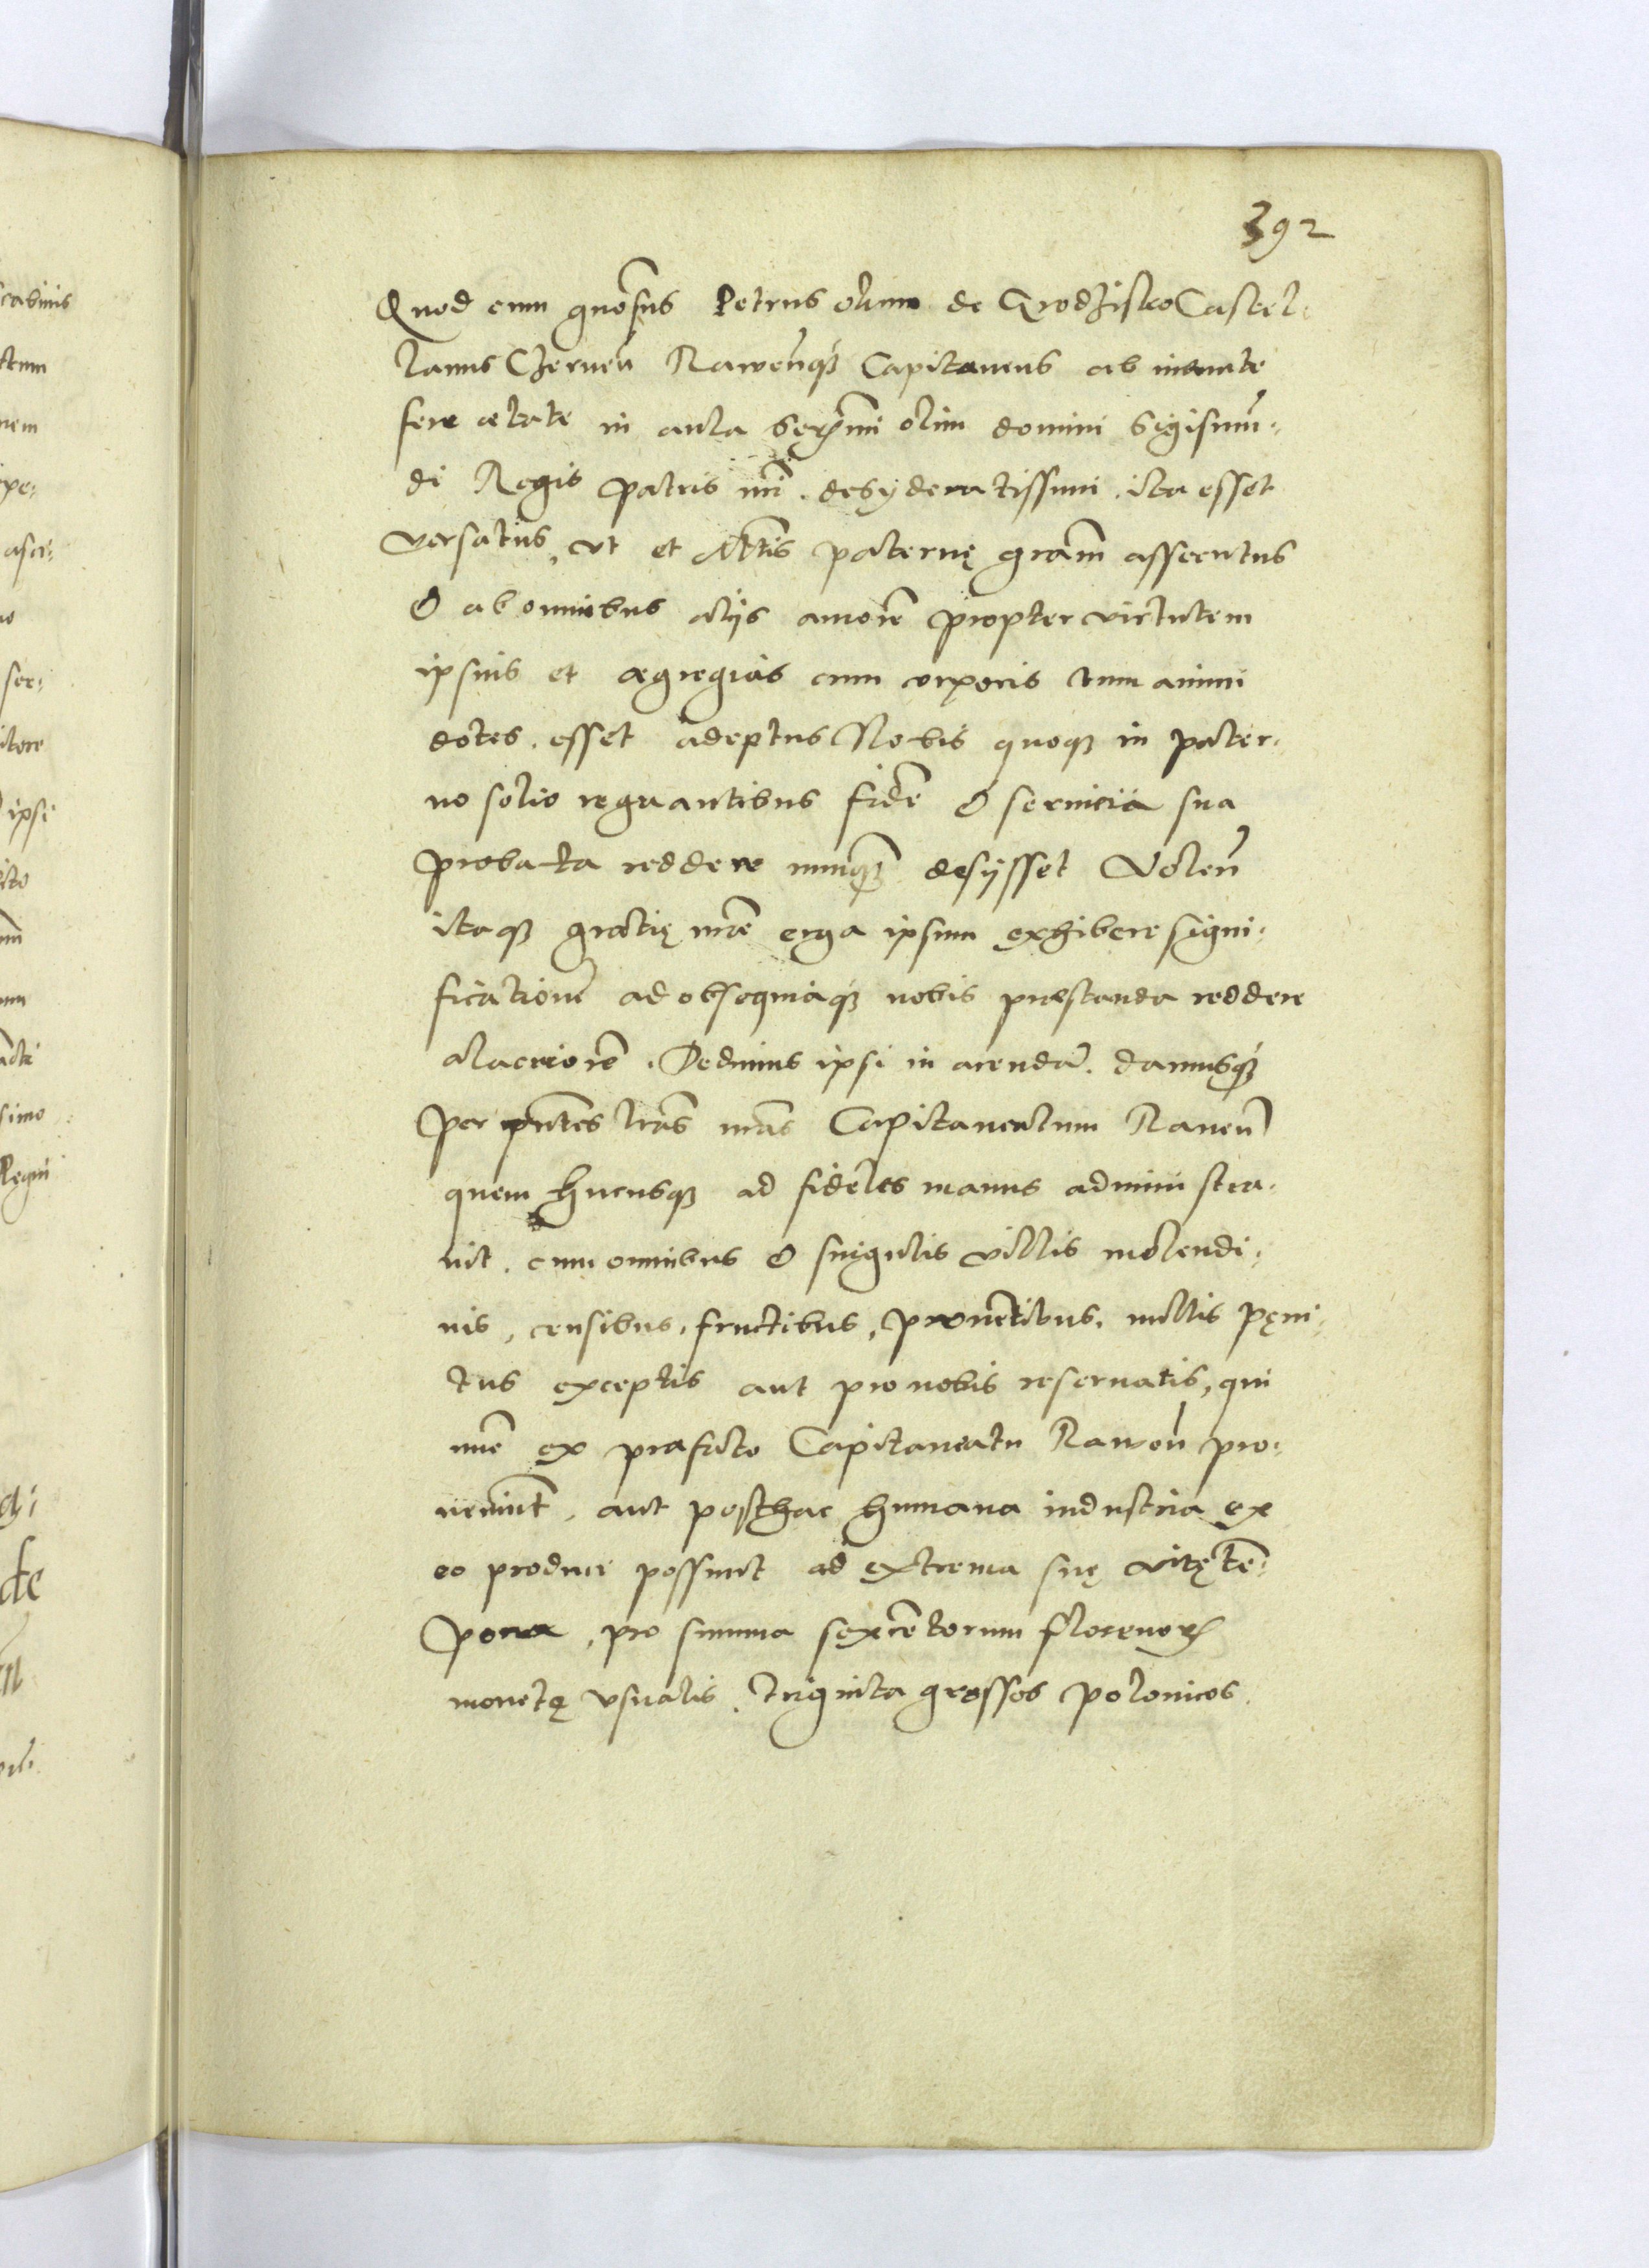 392
Quod cum gnosus Petrus olim de Grodzisko Castel-
lanus Czernen Rawenque Capitaneus ab ineunte
fere ætate in aula serenmi olim domini Sigismun-
di Regis patris nri desyderatissimi ita esset
versatus, vt et Mttis paternę gratiam assecutus
& ab omnibus alijs amorem propter virtutem
ipsius et ægregias cum corporis tum animi
dotes. esset adeptus Nobis quoque in pater-
no solio regnantibus fidem & servicia sua
probata reddere nunquam desijsset Volen
itaque gratię nræ erga ipsum exhibere signi-
ficationem ad obsequiaque nobis præstanda reddere
alacriorem. Dedimus ipsi in arendam. damusque
per pntes lras nras Capitaneatum Raven
quem hucusque ad fideles manus administra-
uit. cum omnibus & singulis villis molendi-
nis, censibus, fructibus, prouentibus. nullis pęni-
tus exceptis aut pro nobis reseruatis, qui
nunc ex præfato Capitaneatu Rawen pro-
ueniunt, aut posthac humana industria ex
eo produci possunt ad extrema suę vitę tem-
pora, pro summa sexcentorum florenorum
monetę vsualis. triginta grossos polonicos
cabinis
ctum
nem
ipsi
simo
Regni